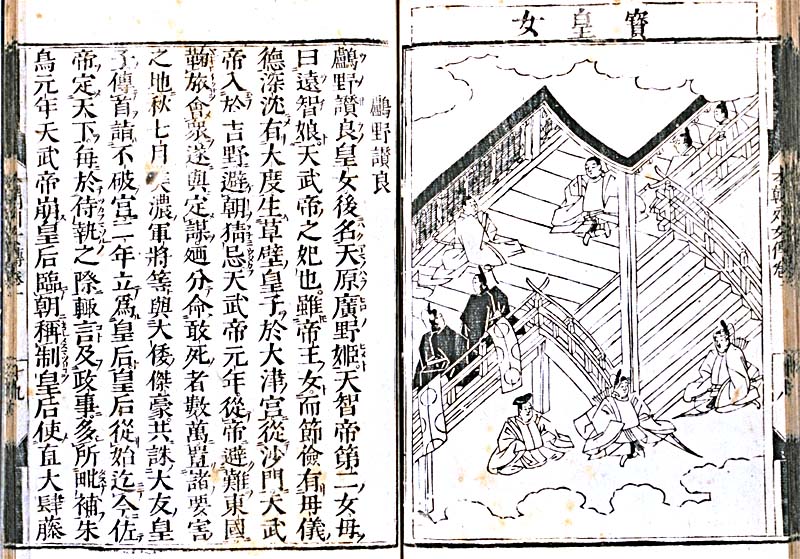 寶皇女
本朝列女傳卷
鸕野讚良
鸕野讚良皇女後名天原廣野姬天智帝第二女母
曰遠智娘天武帝之妃也雖帝王女而節儉有母儀
德深沈有大度生草壁皇子於大津宮從沙門天武
帝入於吉野避朝猜忌天武帝元年從帝避難東國
鞠旅會衆遂與定謀廼分命敢死者數萬置諸要害
之地秋七月美濃軍將等與大倭傑豪共誅大友皇
子傳首詣不破宮二年立爲皇后皇后從始迄今佐
帝定天下毎於侍執之際輙言及政事多所毗補朱
鳥元年天武帝崩皇后臨朝稱制皇后使直大肆藤